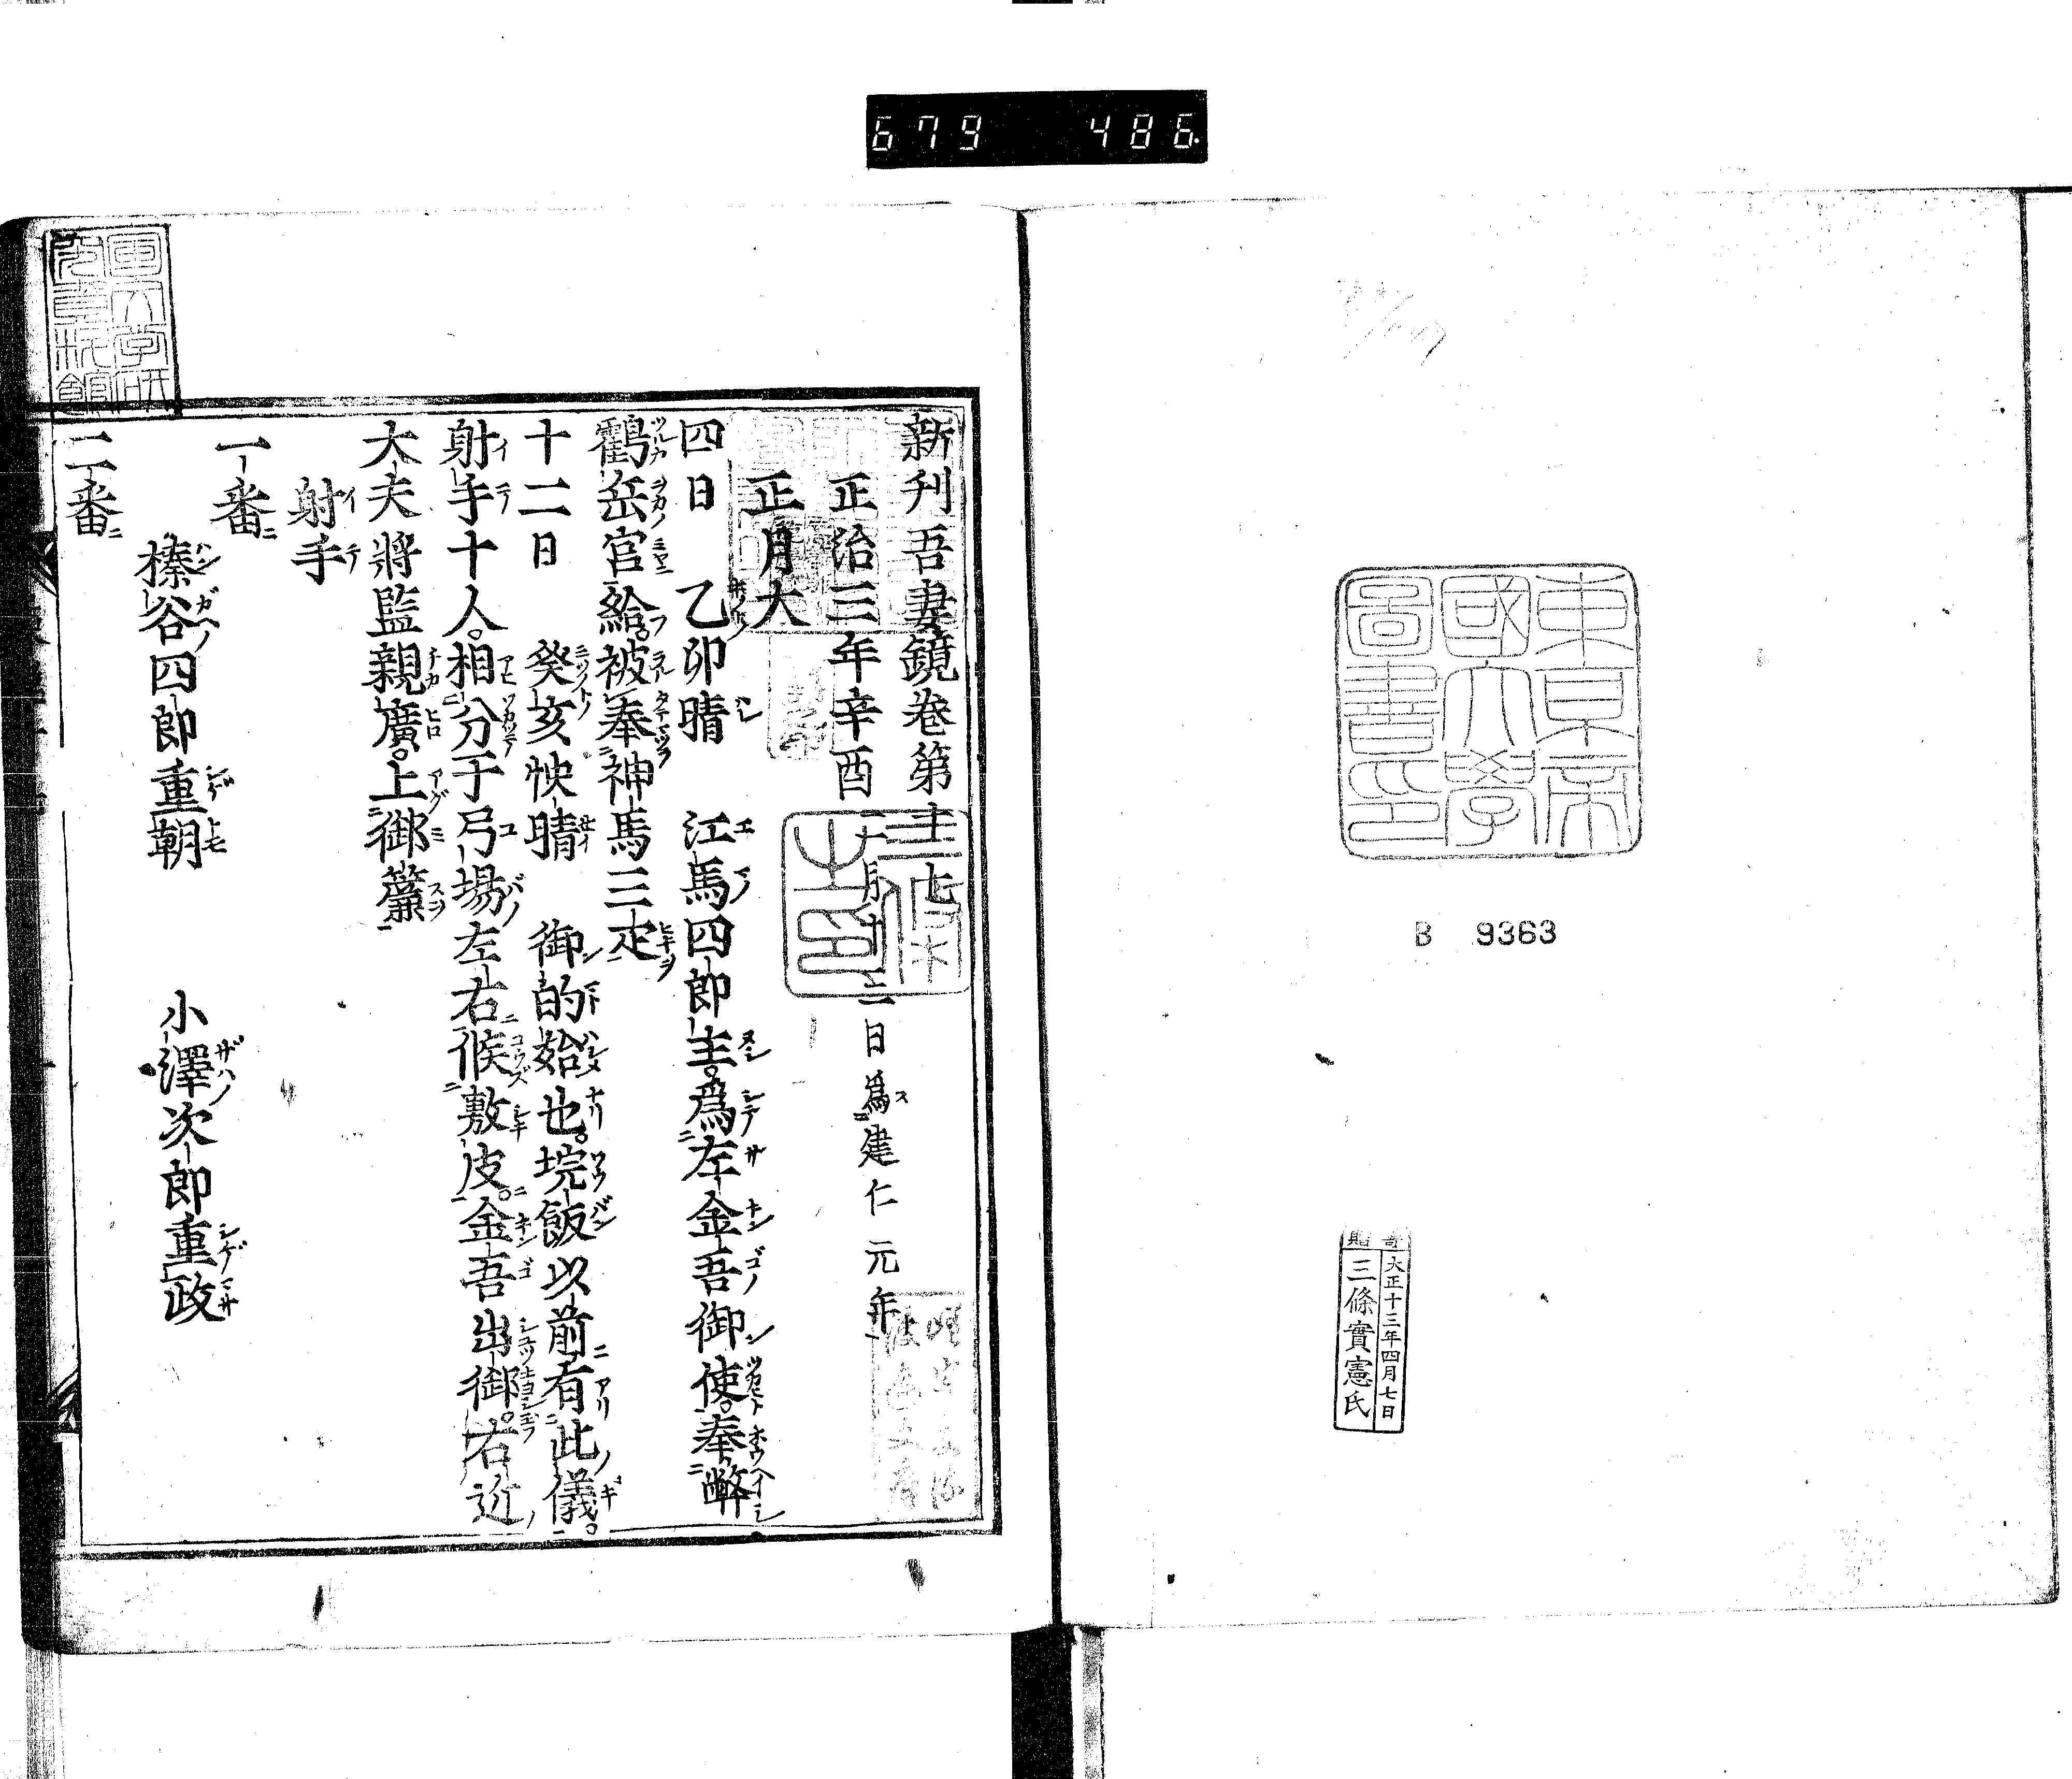 679 486.
東京帝
國大學
圖書印
B 9363
寄贈
大正十三年四月七日
三條實憲氏
新刊吾妻鏡卷第十七
正治三年辛酉 二月十三日爲建仁元年
正月大
四日 乙卯晴 江馬四郎主。爲左金吾御使。奉幣
鶴岳宮給。被奉神馬三疋
十二日 癸亥快晴 御的始也。垸飯以前有此儀。
射手十人。相分于弓場左右候敷皮。金吾出御。右近
大夫將監親廣。上御簾
射手
一番
榛谷四郎重朝 小澤次郎重政
二番